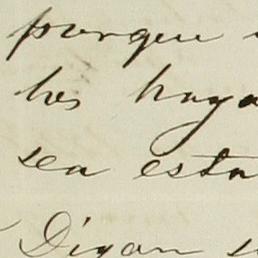 porque
les haya
sea esta
Digan